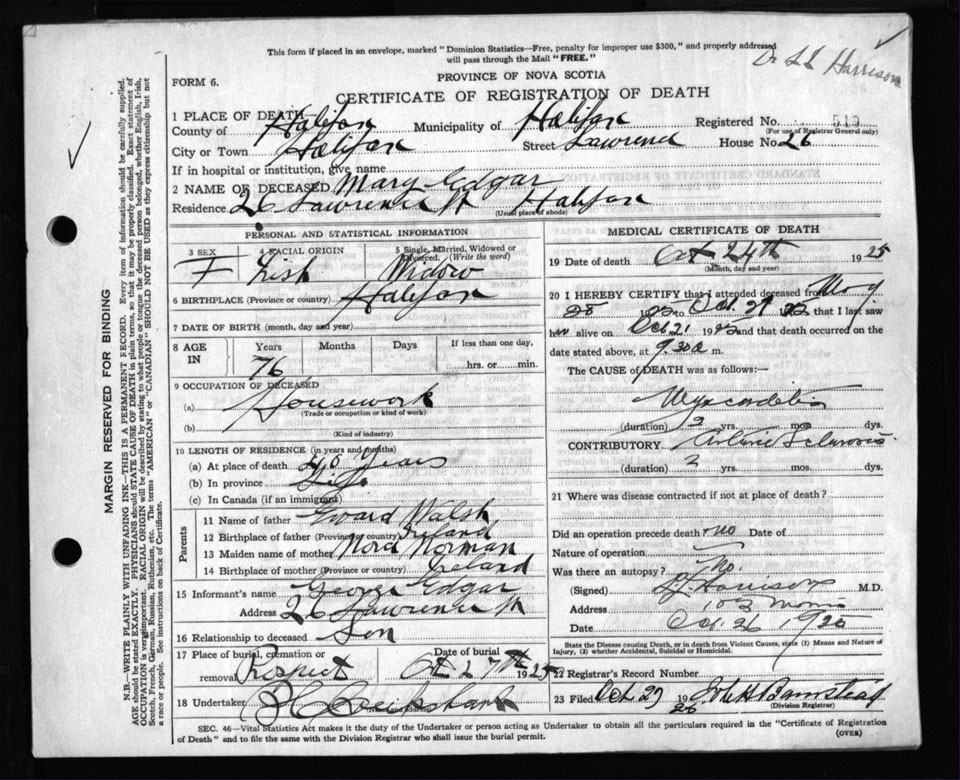 This form if placed in an envelope, marked "Dominion Statistics—Free, penalty for improper use $300," and properly addressed
will pass through the Mail "FREE."
Dr Harrison
FORM 6.
PROVINCE OF NOVA SCOTIA
CERTIFICATE OF REGISTRATION OF DEATH
1 PLACE OF DEATH
County of Halifax Municipality of Halifax Registered No. 513
(For use of Registrar General only)
City or Town Halifax Street Lawrence House No. 26
If in hospital or institution, give name
2 NAME OF DECEASED Mary Edgar
Residence 26 Lawrence St Halifax
(Usual place of abode)
PERSONAL AND STATISTICAL INFORMATION
3 SEX F
4 RACIAL ORIGIN Irish
5 Single, Married, Widowed or Divorced. (Write the word) Widow
6 BIRTHPLACE (Province or country) Halifax
7 DATE OF BIRTH (month, day and year)
8 AGE IN Years 76 Months Days If less than one day, hrs. or min.
9 OCCUPATION OF DECEASED
(a) Housework
(Trade or occupation or kind of work)
(b)
(Kind of industry)
10 LENGTH OF RESIDENCE (in years and months)
(a) At place of death 40 years
(b) In province Life
(c) In Canada (if an immigrant)
Parents
11 Name of father Edward Walsh
12 Birthplace of father (Province or country) Ireland
13 Maiden name of mother Nora Norman
14 Birthplace of mother (Province or country) Ireland
15 Informant's name George Edgar
Address 26 Lawrence St
16 Relationship to deceased Son
17 Place of burial, cremation or removal Date of burial Oct 27th 1925
18 Undertaker
MEDICAL CERTIFICATE OF DEATH
19 Date of death Oct 24th 1925
(Month, day and year)
20 I HEREBY CERTIFY that I attended deceased from
that I last saw
h alive on Oct 21 19 and that death occurred on
date stated above, at 9.30 a m.
The CAUSE of DEATH was as follows:—
Myocarditis
(duration) yrs. mos. dys.
CONTRIBUTORY
(duration) 2 yrs. mos. dys.
21 Where was disease contracted if not at place of death?
Did an operation precede death no Date of
Nature of operation
Was there an autopsy? No.
(Signed) Harrison M.D.
Address Morris
Date Oct. 26
State the Disease causing Death, or in death from Violent Causes, state (1) Means and Nature of
Injury, (2) whether Accidental, Suicidal or Homicidal.
22 Registrar's Record Number
23 Filed Oct 27 19
(Division Registrar)
SEC. 46—Vital Statistics Act makes it the duty of the Undertaker or person acting as Undertaker to obtain all the particulars required in the "Certificate of Registration
of Death" and to file the same with the Division Registrar who shall issue the burial permit.
(OVER)
MARGIN RESERVED FOR BINDING
N.B.—WRITE PLAINLY WITH UNFADING INK—THIS IS A PERMANENT RECORD. Every item of information should be carefully supplied.
AGE should be stated EXACTLY. PHYSICIANS should STATE CAUSE OF DEATH in plain terms, so that it may be properly classified. Exact statement of
OCCUPATION is very important. RACIAL ORIGIN will be described by stating to what people or tongue the deceased person belonged, whether English, Irish,
Scotch, French, German, Russian, Ruthenian, etc. The terms "AMERICAN" or "CANADIAN" SHOULD NOT BE USED as they express citizenship but not
a race or people. See instructions on back of Certificate.